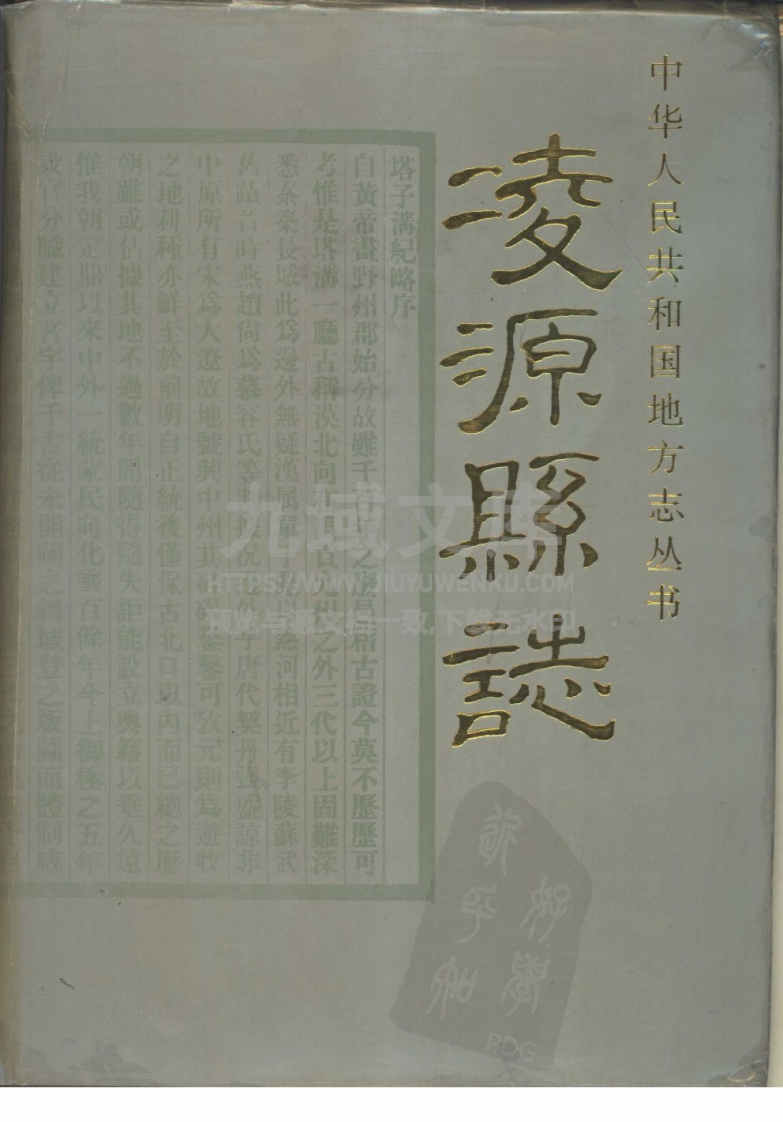 中华人民共和国地方志丛书
凌源縣誌
塔子溝紀略序
自黃帝畫野州郡始分故雖千百年之 稽古證今莫不歷歷可
考惟是塔溝一廳古稱漠北向 之外三代以上固難深
悉秦築長城此為邊外無疑漢属單于 熱河相近有李陵蘇武
舊蹟晉時燕趙尚為慕容氏等 唐代契丹 盛諒非
中原所有宋為人遼故地號興中州其 鑿可攷元則為遊牧
之地耕種亦鮮至於前明自正統後僅保古北口以內而已總之歷
朝雖或佔據其地不過數年間隨得隨失詎能設立輿籍以垂久遠
惟我朝定鼎以來中外一統蒙民向化垂百餘年今上御極之五年
設官分職建立 千古從未開 之版圖而體制咸
九域文库
HTTPS://WWW.JIUYUWENKU.COM
预览与源文档一致,下载无水印
好學
近乎知
PDG